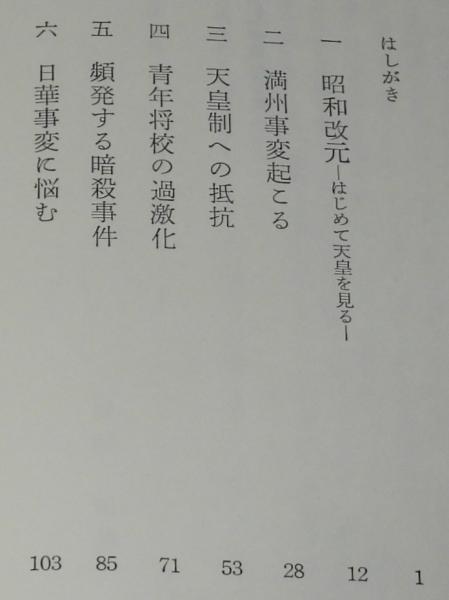 はしがき 1
一 昭和改元―はじめて天皇を見る― 12
二 満州事変起こる 28
三 天皇制への抵抗 53
四 青年将校の過激化 71
五 頻発する暗殺事件 85
六 日華事変に悩む 103